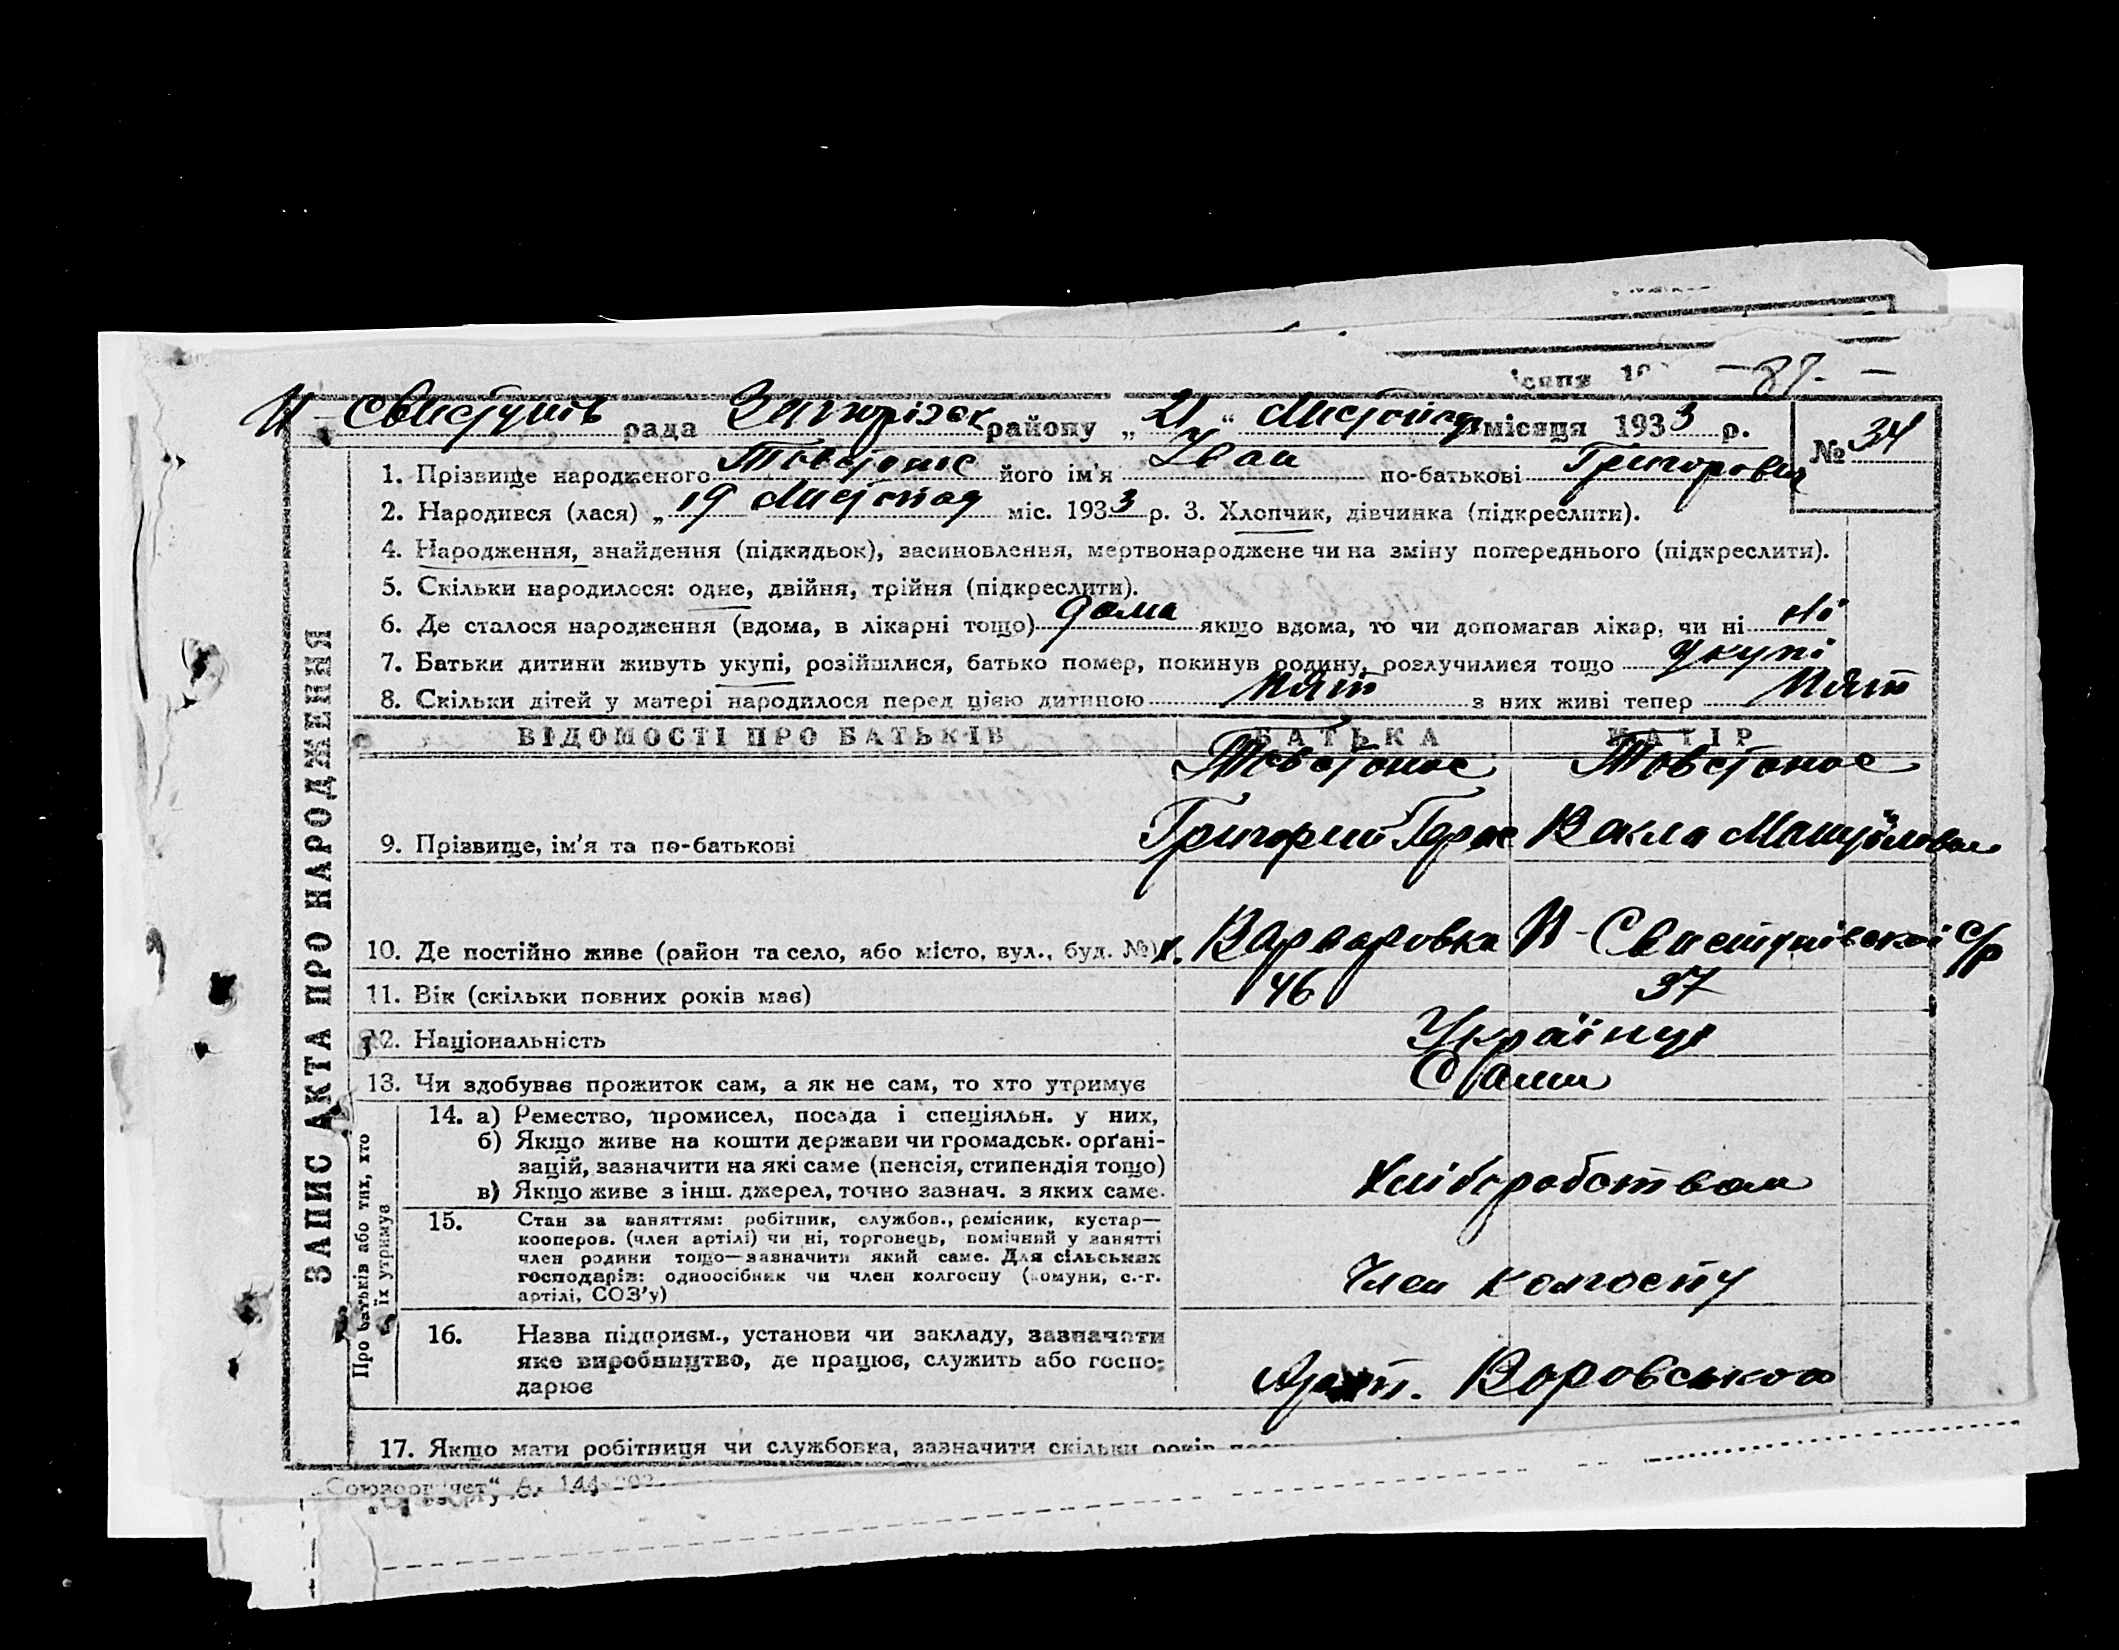 -87-
Н-Свистунів рада Запоріжск району „21“ Листопад місяця 1933 р.
№ 34
1. Прізвище народженого Товстонос його ім'я Іван по-батькові Григорович
2. Народився (лася) „19 Листопад міс. 1933 р. 3. Хлопчик, дівчинка (підкреслити).
4. Народження, знайдення (підкидьок), засиновлення, мертвонароджене чи на зміну попереднього (підкреслити).
5. Скільки народилося: одне, двійня, трійня (підкреслити).
6. Де сталося народження (вдома, в лікарні тощо) дома якщо вдома, то чи допомагав лікар, чи ні Ні
7. Батьки дитини живуть укупі, розійшлися, батько помер, покинув родину, розлучилися тощо Укупі
8. Скільки дітей у матері народилося перед цією дитиною Пят з них живі тепер Пят
ВІДОМОСТІ ПРО БАТЬКІВ БАТЬКА МАТІР
Товстонос Товстонос
9. Прізвище, ім'я та по-батькові Григорий Герас Векла
10. Де постійно живе (район та село, або місто, вул., буд. №) х. Варваровка Н-Свистунівскої с/р
11. Вік (скільки повних років має) 46 37
12. Національність Українці
13. Чи здобуває прожиток сам, а як не сам, то хто утримує Сами
ЗАПИС АКТА ПРО НАРОДЖЕННЯ
Про батьків або тих, хто їх утримує
14. а) Ремество, промисел, посада і спеціяльн. у них,
б) Якщо живе на кошти держави чи громадськ. орґані-
зацій, зазначити на які саме (пенсія, стипендія тощо)
в) Якщо живе з інш. джерел, точно зазнач. з яких саме.
Хліборобством
15. Стан за заняттям: робітник, службов., ремісник, кустар—
кооперов. (член артілі) чи ні, торговець, помічний у занятті
член родини тощо—зазначити який саме. Для сільських
господарів: одноосібник чи член колгоспу (комуни, с.-г.
артілі, СОЗ'у)
Член колгоспу
16. Назва підприєм., установи чи закладу, зазначати
яке виробництво, де працює, служить або госпо-
дарює
Арт. Воровського
17. Якщо мати робітниця чи службовка, зазначити скільки років